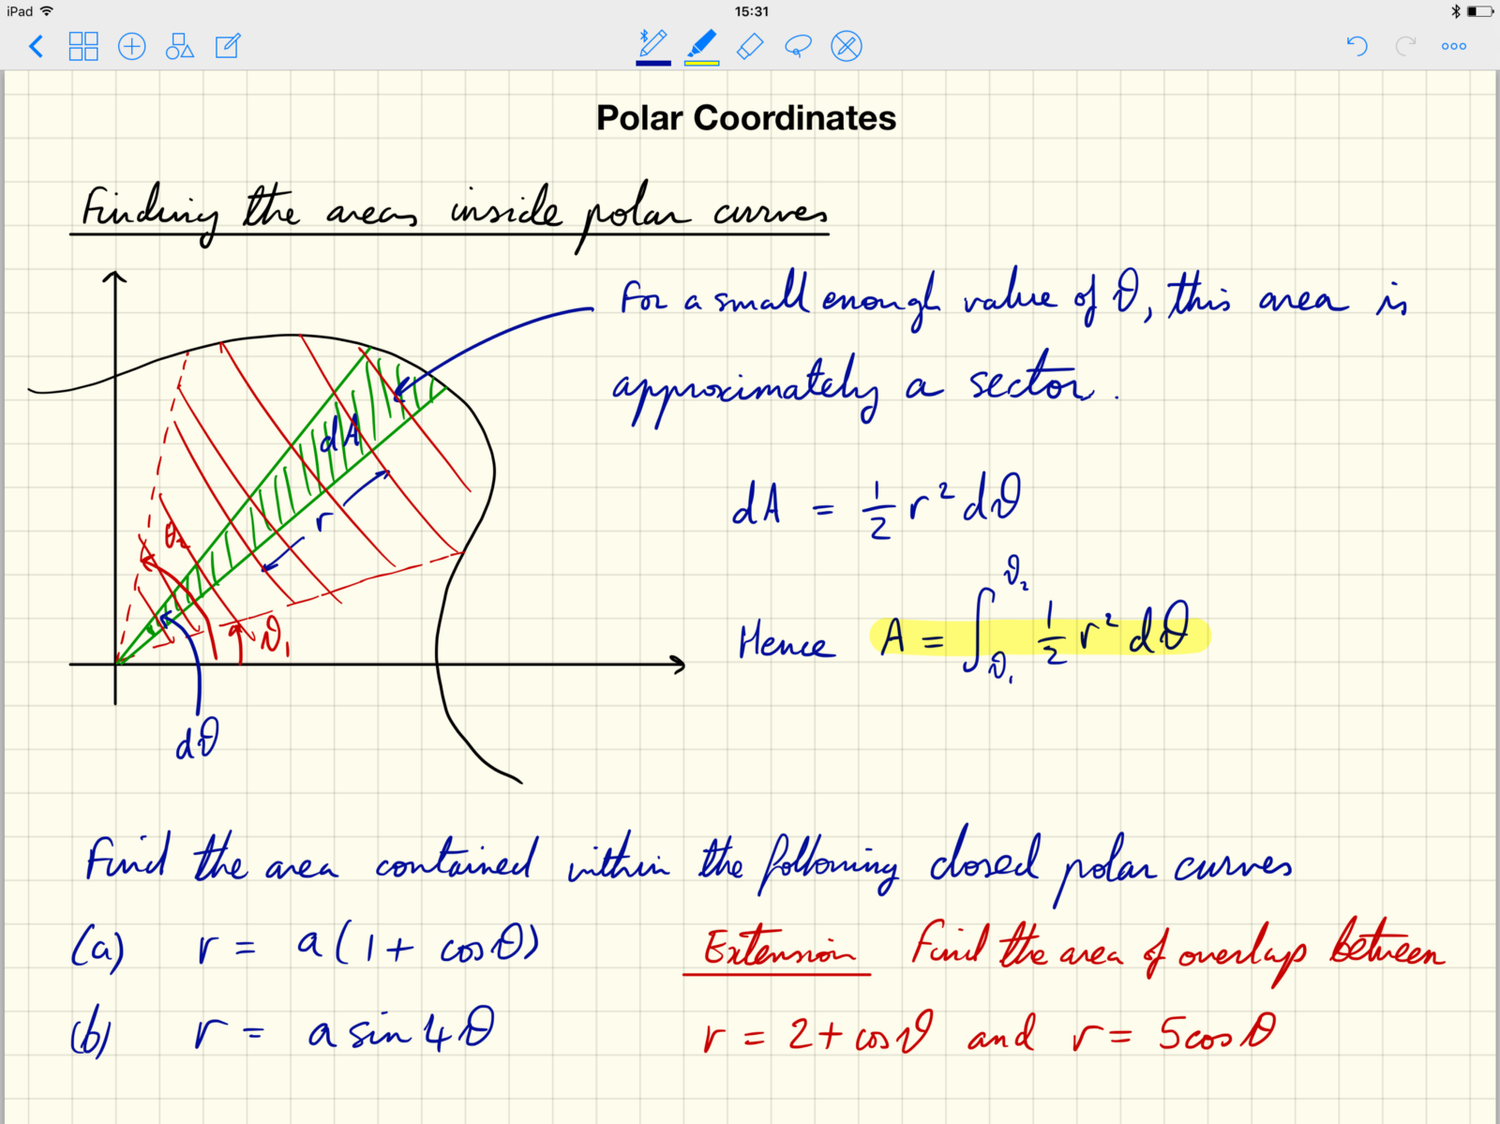 iPad 15:31
Polar Coordinates
Finding the areas inside polar curves
For a small enough value of θ, this area is
approximately a sector.
dA
r
θ₂
θ₁
dθ
dA = 1/2 r² dθ
Hence A = ∫_θ₁^θ₂ 1/2 r² dθ
Find the area contained within the following closed polar curves
(a) r = a(1 + cosθ)
(b) r = a sin 4θ
Extension Find the area of overlap between
r = 2 + cosθ and r = 5cosθ